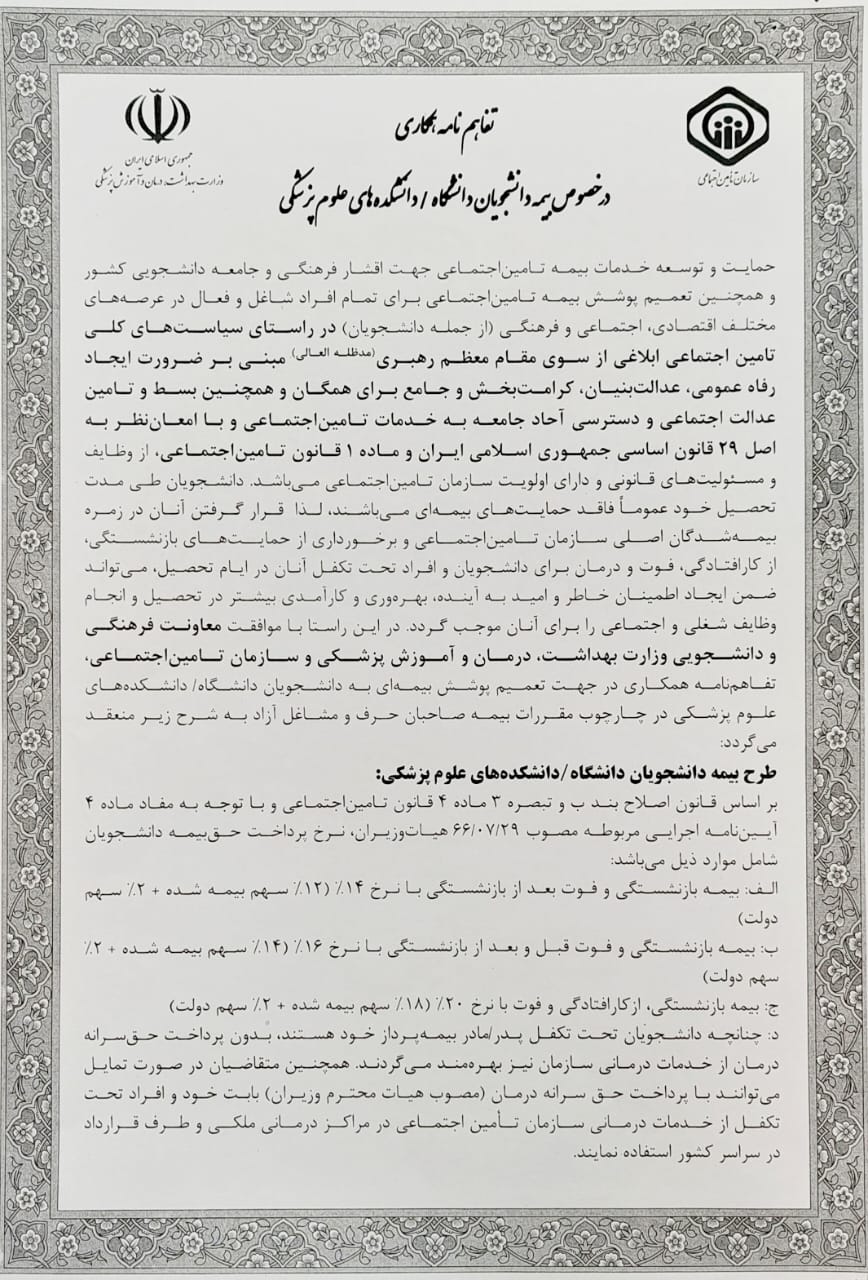 تفاهم نامه همکاری
در خصوص بیمه دانشجویان دانشگاه / دانشکده های علوم پزشکی
سازمان تأمین اجتماعی
جمهوری اسلامی ایران
وزارت بهداشت، درمان و آموزش پزشکی
حمایت و توسعه خدمات بیمه تامین‌اجتماعی جهت اقشار فرهنگی و جامعه دانشجویی کشور
و همچنین تعمیم پوشش بیمه تامین‌اجتماعی برای تمام افراد شاغل و فعال در عرصه‌های
مختلف اقتصادی، اجتماعی و فرهنگی (از جمله دانشجویان) در راستای سیاست‌های کلی
تامین اجتماعی ابلاغی از سوی مقام معظم رهبری (مدظله العالی) مبنی بر ضرورت ایجاد
رفاه عمومی، عدالت‌بنیان، کرامت‌بخش و جامع برای همگان و همچنین بسط و تامین
عدالت اجتماعی و دسترسی آحاد جامعه به خدمات تامین‌اجتماعی و با امعان‌نظر به
اصل ۲۹ قانون اساسی جمهوری اسلامی ایران و ماده ۱ قانون تامین‌اجتماعی، از وظایف
و مسئولیت‌های قانونی و دارای اولویت سازمان تامین‌اجتماعی می‌باشد. دانشجویان طی مدت
تحصیل خود عموماً فاقد حمایت‌های بیمه‌ای می‌باشند، لذا قرار گرفتن آنان در زمره
بیمه‌شدگان اصلی سازمان تامین‌اجتماعی و برخورداری از حمایت‌های بازنشستگی،
از کارافتادگی، فوت و درمان برای دانشجویان و افراد تحت تکفل آنان در ایام تحصیل، می‌تواند
ضمن ایجاد اطمینان خاطر و امید به آینده، بهره‌وری و کارآمدی بیشتر در تحصیل و انجام
وظایف شغلی و اجتماعی را برای آنان موجب گردد. در این راستا با موافقت معاونت فرهنگی
و دانشجویی وزارت بهداشت، درمان و آموزش پزشکی و سازمان تامین‌اجتماعی،
تفاهم‌نامه همکاری در جهت تعمیم پوشش بیمه‌ای به دانشجویان دانشگاه/ دانشکده‌های
علوم پزشکی در چارچوب مقررات بیمه صاحبان حرف و مشاغل آزاد به شرح زیر منعقد
می‌گردد:
طرح بیمه دانشجویان دانشگاه /دانشکده‌های علوم پزشکی:
بر اساس قانون اصلاح بند ب و تبصره ۳ ماده ۴ قانون تامین‌اجتماعی و با توجه به مفاد ماده ۴
آیین‌نامه اجرایی مربوطه مصوب ۶۶/۰۷/۲۹ هیات‌وزیران، نرخ پرداخت حق‌بیمه دانشجویان
شامل موارد ذیل می‌باشد:
الف: بیمه بازنشستگی و فوت بعد از بازنشستگی با نرخ ۱۴٪ (۱۲٪ سهم بیمه شده + ۲٪ سهم
دولت)
ب: بیمه بازنشستگی و فوت قبل و بعد از بازنشستگی با نرخ ۱۶٪ (۱۴٪ سهم بیمه شده + ۲٪
سهم دولت)
ج: بیمه بازنشستگی، ازکارافتادگی و فوت با نرخ ۲۰٪ (۱۸٪ سهم بیمه شده + ۲٪ سهم دولت)
د: چنانچه دانشجویان تحت تکفل پدر/مادر بیمه‌پرداز خود هستند، بدون پرداخت حق‌سرانه
درمان از خدمات درمانی سازمان نیز بهره‌مند می‌گردند. همچنین متقاضیان در صورت تمایل
می‌توانند با پرداخت حق سرانه درمان (مصوب هیات محترم وزیران) بابت خود و افراد تحت
تکفل از خدمات درمانی سازمان تأمین اجتماعی در مراکز درمانی ملکی و طرف قرارداد
در سراسر کشور استفاده نمایند.